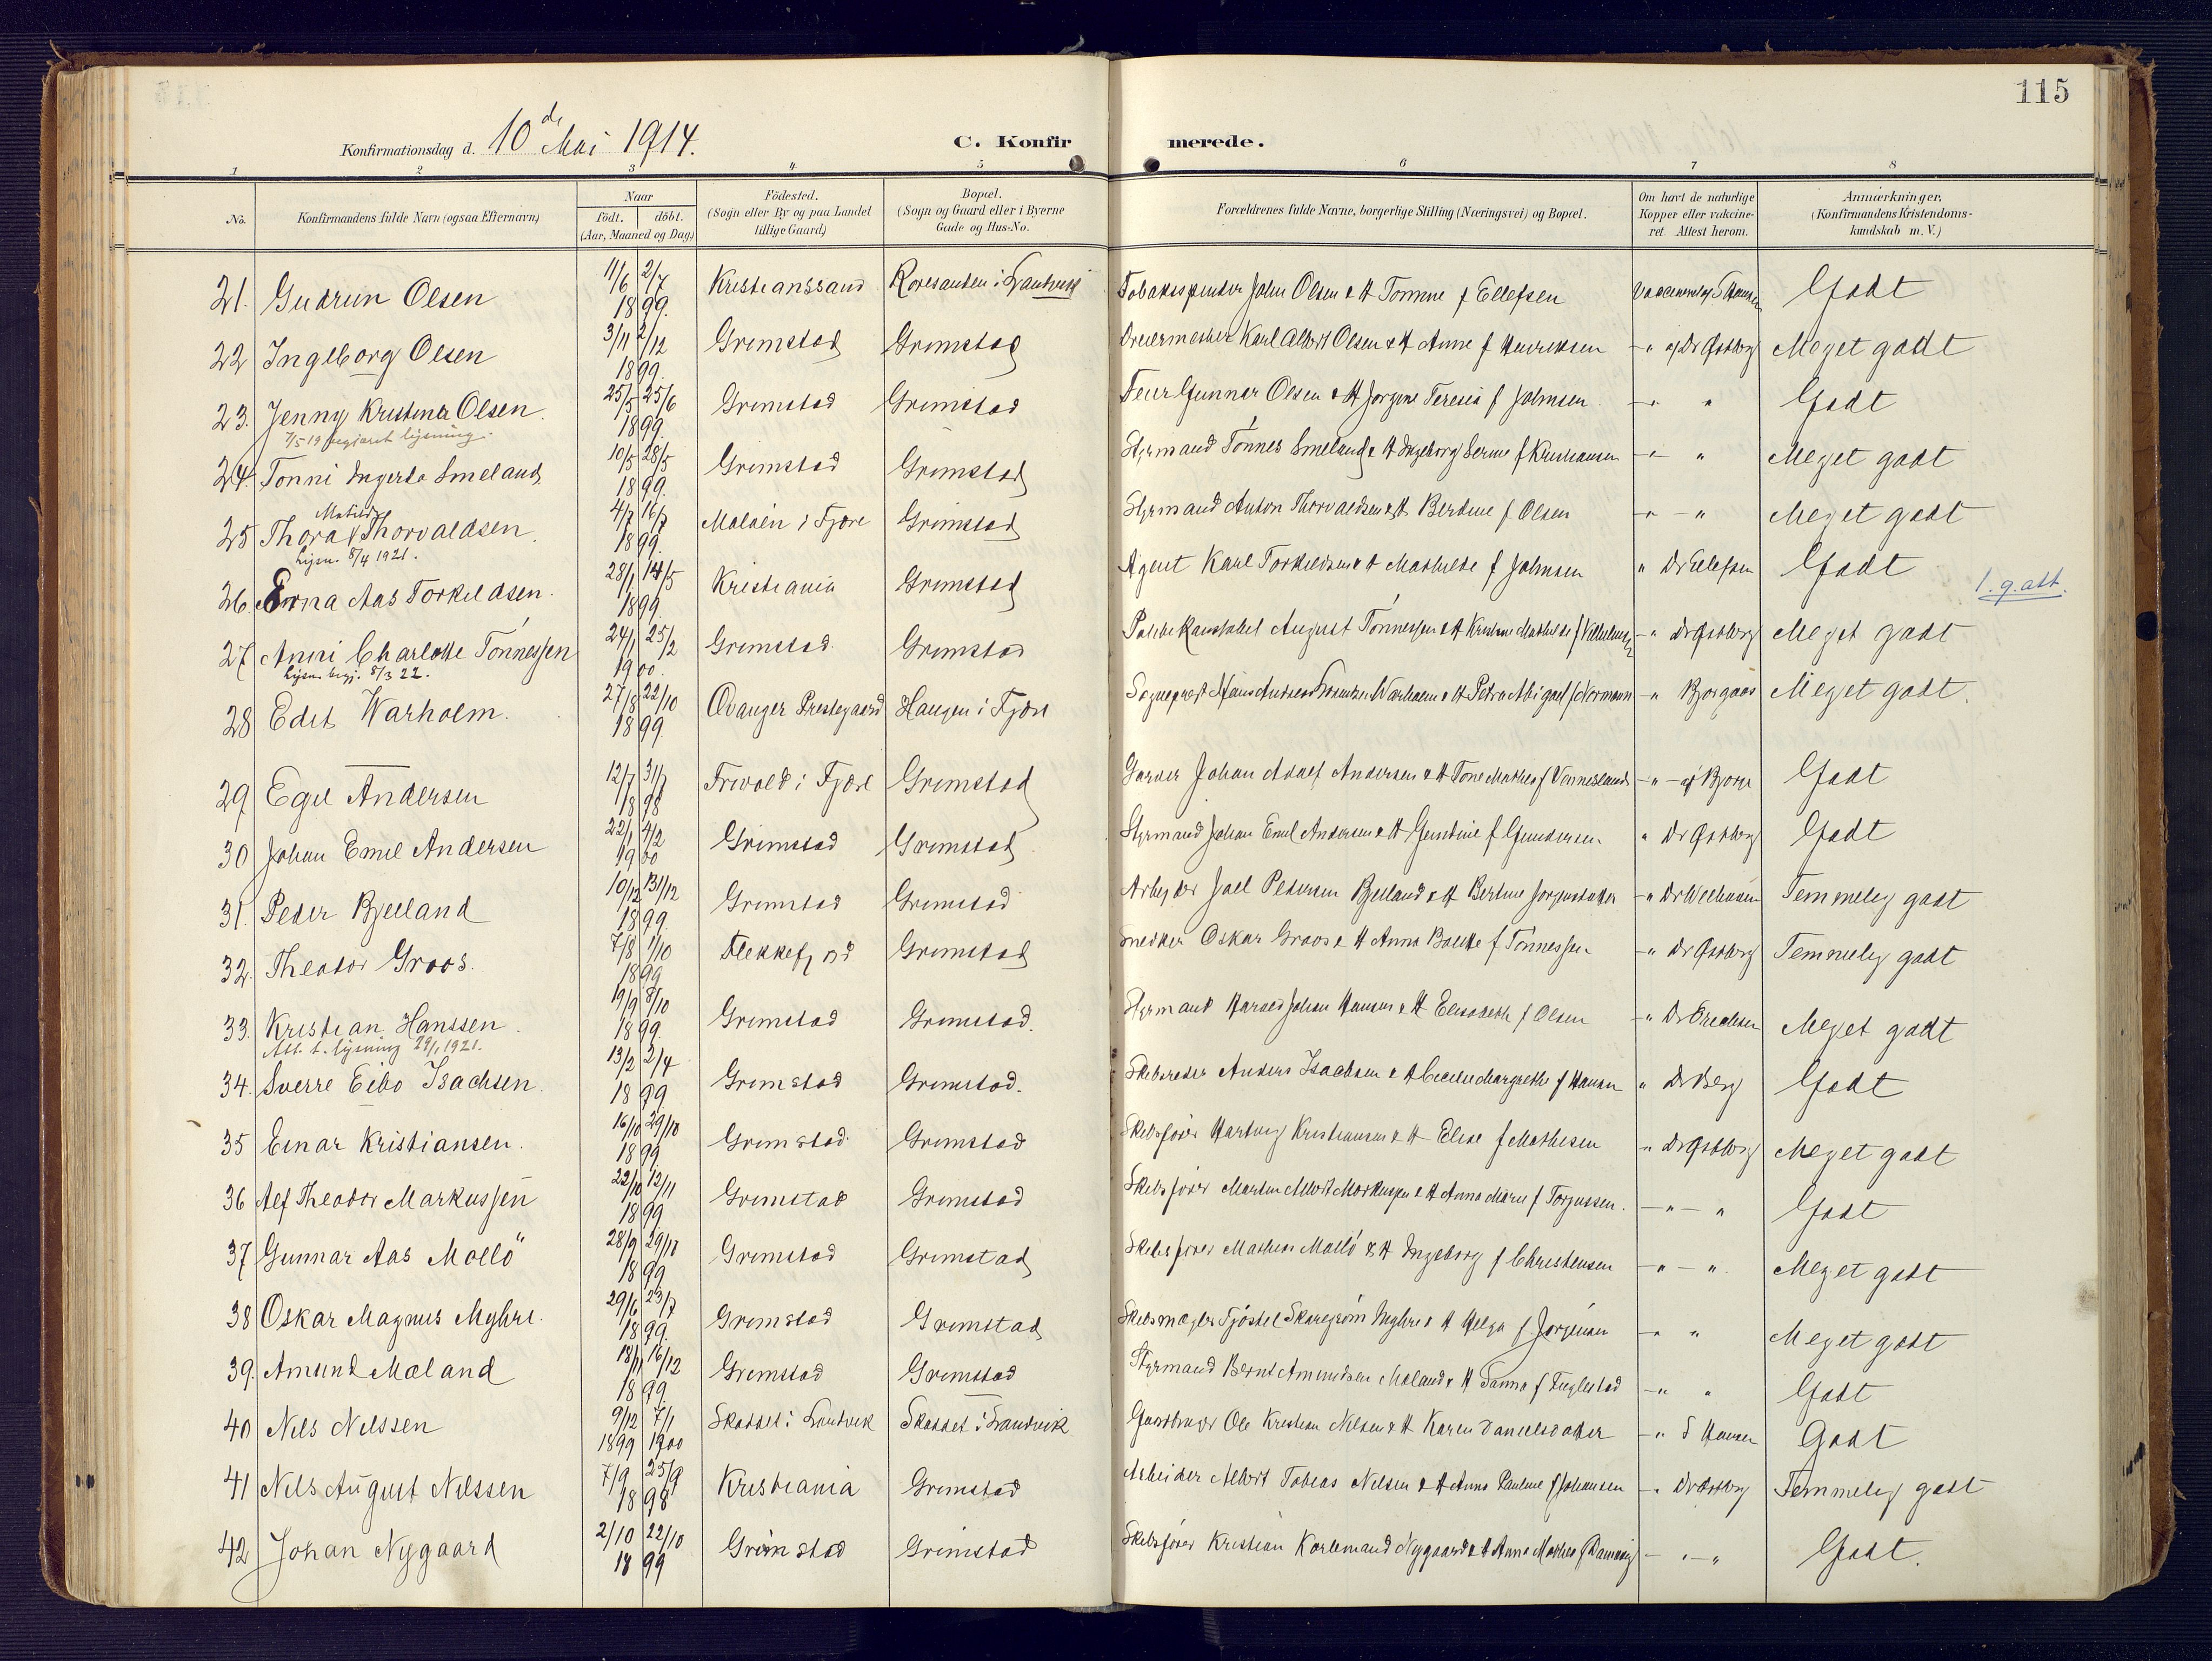 115
Konfirmationsdag d. 10de Mai 1914. C. Konfirmerede.
1 2 3 4 5 6 7 8
No. Konfirmandens fulde Navn (ogsaa Efternavn) Naar födt. döbt. (Aar, Maaned og Dag) Födested. (Sogn eller By og paa Landet tillige Gaard) Bopæl. (Sogn og Gaard eller i Byerne Gade og Hus-No. Forældrenes fulde Navne, borgerlige Stilling (Næringsvei) og Bopæl. Om havt de naturlige Kopper eller vakcineret. Attest herom. Anmærkninger. (Konfirmandens Kristendomskundskab m. V.)
21. Gudrun Olsen 11/6 2/7 1899. Kristianssand Roresanden i Landvik Tobakspinder John Olsen & H Tomine f Ellefsen Godt
22 Ingeborg Olsen 3/11 2/12 1899. Grimstad Grimstad Karl Albert Olsen & H Anne f Henriksen -" af Dr Østberg Meget godt
23. Jenny Kristine Olsen. 25/5 25/6 1899. Grimstad Grimstad Feier Gunnar Olsen & H Jorgine Teresia f Johnsen -" " Godt
7/5 19 begjæret lysning.
24. Tonni Ingerda Smeland 10/5 28/5 1899. Grimstad Grimstad Styrmand Tønnes Smeland & H Ingeborg f -" " Meget godt
25 Thora Matilde Thorvaldsen. 4/7 16/7 1899. Moloen i Fjære Grimstad Styrmand Anton Thorvaldsen & H Bertine f Olsen -" - " Meget godt
Lysn. 8/4 1921.
26. Erna Aas Torkeldsen. 28/1 14/5 1899. Kristiania Grimstad Agent Karl Torkeldsen & H Mathilde f Johnsen " Dr Ellefsen Godt 1. g. att.
27 Anni Charlotte Tönnessen 24/1 25/2 1900. Grimstad. Grimstad Politikonstabel August Tönnessen & H Kristine Mathilde f -" Dr Østberg Meget godt
Lysn. begj. 8/3 22.
28 Edit Warholm. 27/8 22/10 1899 Qvanger Prestegaard Haugen i Fjære Sogneprest Hans Warholm & H Petra Abigael f Normann -" Bjorgaas Meget godt.
29 Egil Andersen 12/7 31/7 1898 Frivold i Fjære Grimstad Garver Johan Adolf Andersen & H Tone Mathea f Venneslands -" - af Godt
30 Johan Emil Andersen 22/1 4/2 1900 Grimstad Grimstad Styrmand Johan Emil Andersen & H Gundine f Gundersen. " Dr Østberg Godt
31. Peder Bjelland 10/12 31/12 1899. Grimstad Grimstad Arbeider Joel Pedersen Bjelland & H Bertine -" Dr Temmelig godt
32. Theodor Groos. 7/8 1/10 1899 Flekkefjord Grimstad Snedker Oskar Groos & H Anna f Tönnessen -" Dr Østberg Temmelig godt
33. Kristian Hanssen. 19/9 8/10 1899. Grimstad Grimstad. Styrmand Harald Johan Hansen & H Elisabeth f Olsen -" Dr Meget godt
Att. t. lysning 29/1 1921.
34. Sverre Eibo Isachsen. 13/2 2/4 1899 Grimstad Grimstad. Skibsreder Anders Isachsen & H Cecilie Margrethe f Hansen " Dr Berg Godt
35 Einar Kristiansen. 16/10 29/10 1899. Grimstad Grimstad Skibsfører Hartvig Kristiansen & H Elise f Mathisen " Dr Østberg Meget godt
36 Alf Theodor Markussen 22/10 12/11 1899 Grimstad Grimstad Skibsfører Martin Albert Markussen & H Anna Marie f Torjussen. -" - " Godt
37 Gunnar Aas Mollö 28/9 29/10 1899 Grimstad Grimstad Skibsfører Mathias Mollö & H Ingeborg f Christensen -" - ". Meget godt
38 Oskar Magnus Myhre. 29/6 23/7 1899. Grimstad Grimstad Skibsmægler Myhre & H Helga f Jørgensen -" " Meget godt
39. Amund Moland 18/11 16/12 1899. Grimstad Grimstad Styrmand Bernt Amundsen Moland & H Tanna f Fuglestad -" " Godt
40 Nils Nilssen 9/12 7/1 1899 1900 Skasset i Landvik Skasset i Landvik Gaardbruger Ole Kristian Nilsen & H Karen Danielsdatter -" S Hansen Godt
41 Nils August Nilssen 7/9 25/9 1898 Kristiania Grimstad Arbeider Albert Tobias Nilsen & H Anna Pauline f Johansen -" Dr Østberg Temmelig godt
42 Johan Nygaard 2/10 22/10 1899 Grimstad Grimstad Skibsfører Kristian Nygaard & H Anna Mathea f - " - " Godt.